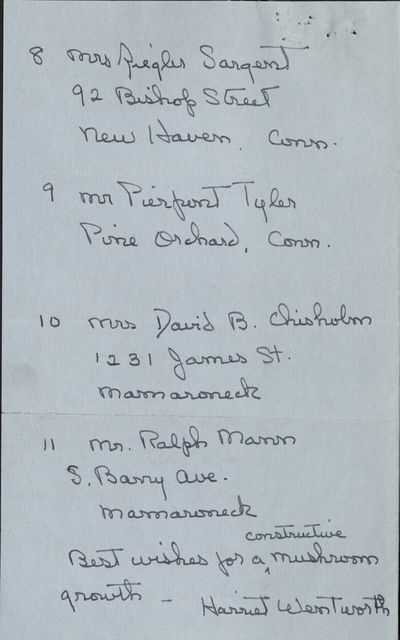 8 Mrs Ziegler Sargent
92 Bishop Street
New Haven. Conn.
9 Mr Pierpont Tyler
Pine Orchard, Conn.
10 Mrs David B. Chisholm
1231 James St.
Mamaroneck
11 Mr. Ralph Mann
S. Barry Ave.
Mamaroneck
constructive
Best wishes for a ^ mushroom
growth - Harriet Wentworth